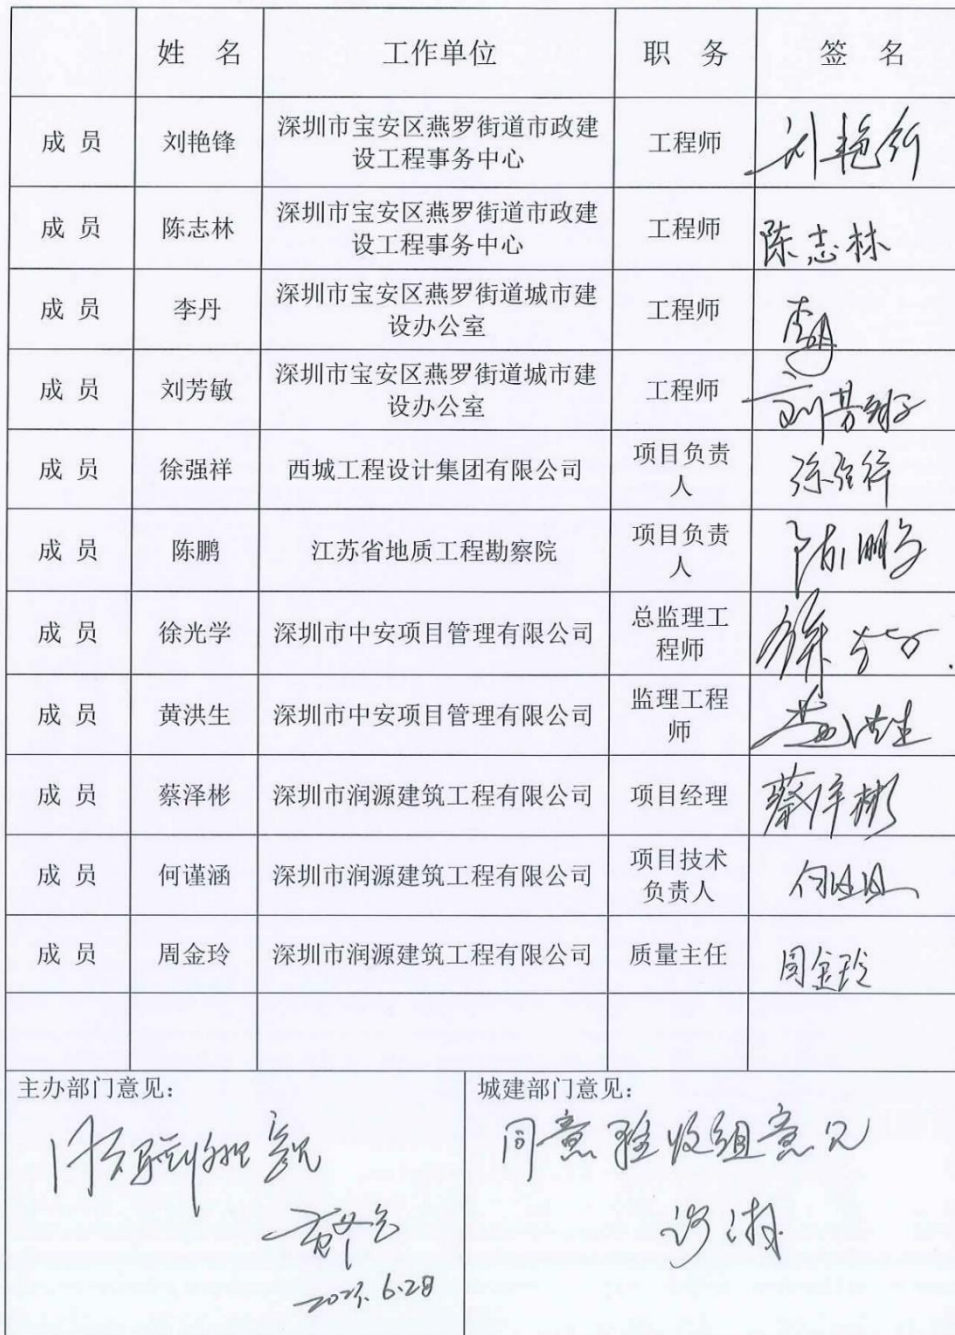 姓 名 工作单位 职 务 签 名
成 员 刘艳锋 深圳市宝安区燕罗街道市政建 工程师 刘艳锋
设工程事务中心
成 员 陈志林 深圳市宝安区燕罗街道市政建 工程师 陈志林
设工程事务中心
成 员 李丹 深圳市宝安区燕罗街道城市建 工程师 李丹
设办公室
成 员 刘芳敏 深圳市宝安区燕罗街道城市建 工程师 刘芳敏
设办公室
成 员 徐强祥 西城工程设计集团有限公司 项目负责 徐强祥
人
成 员 陈鹏 江苏省地质工程勘察院 项目负责
人
成 员 徐光学 深圳市中安项目管理有限公司 总监理工
程师
成 员 黄洪生 深圳市中安项目管理有限公司 监理工程 黄洪生
师
成 员 蔡泽彬 深圳市润源建筑工程有限公司 项目经理 蔡泽彬
成 员 何谨涵 深圳市润源建筑工程有限公司 项目技术
负责人
成 员 周金玲 深圳市润源建筑工程有限公司 质量主任 周金玲
主办部门意见:
城建部门意见:
同意验收组意见